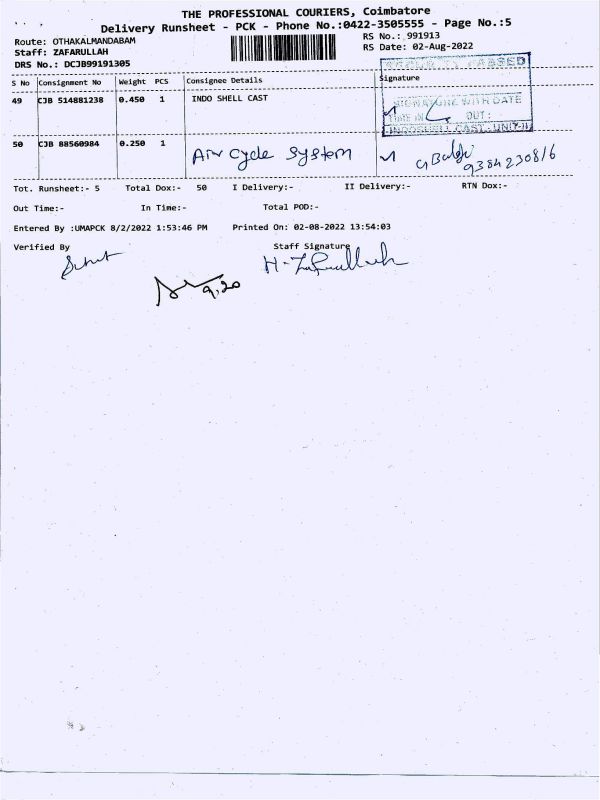 THE PROFESSIONAL COURIERS, Coimbatore
Delivery Runsheet - PCK - Phone No.:0422-3505555 - Page No.:5
Route: OTHAKALMANDABAM
RS No.: 991913
Staff: ZAFARULLAH
RS Date: 02-Aug-2022
DRS No.: DCJB99191305
S No Consignment No Weight PCS Consignee Details Signature
49 CJB 514881238 0.450 1 INDO SHELL CAST
SIGNATURE WITH DATE
TIME IN OUT :
INDOSHELL CAST. UNIT-II
50 CJB 88560984 0.250 1 Air cycle system
9384230816
Tot. Runsheet:- 5 Total Dox:- 50 I Delivery:- II Delivery:- RTN Dox:-
Out Time:- In Time:- Total POD:-
Entered By :UMAPCK 8/2/2022 1:53:46 PM Printed On: 02-08-2022 13:54:03
Verified By Staff Signature
9.20